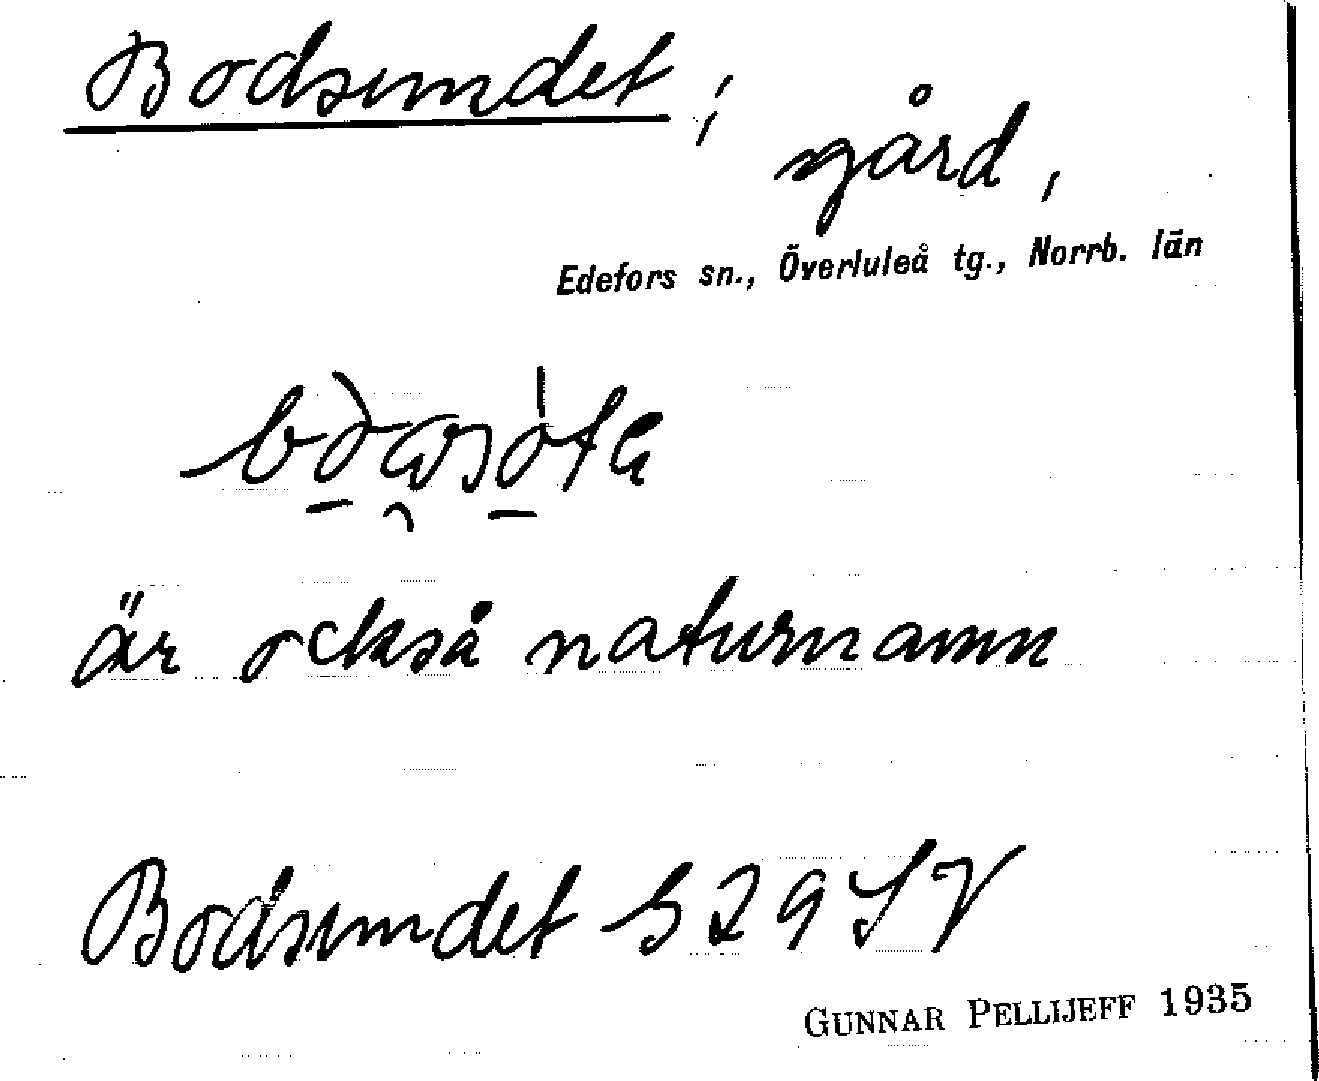 Bodsundet,
gård,
Edefors sn., Överluleå tg., Norrb. län
är också naturnamn
Bodsundet S 29 SV
GUNNAR PELLIJEFF 1935